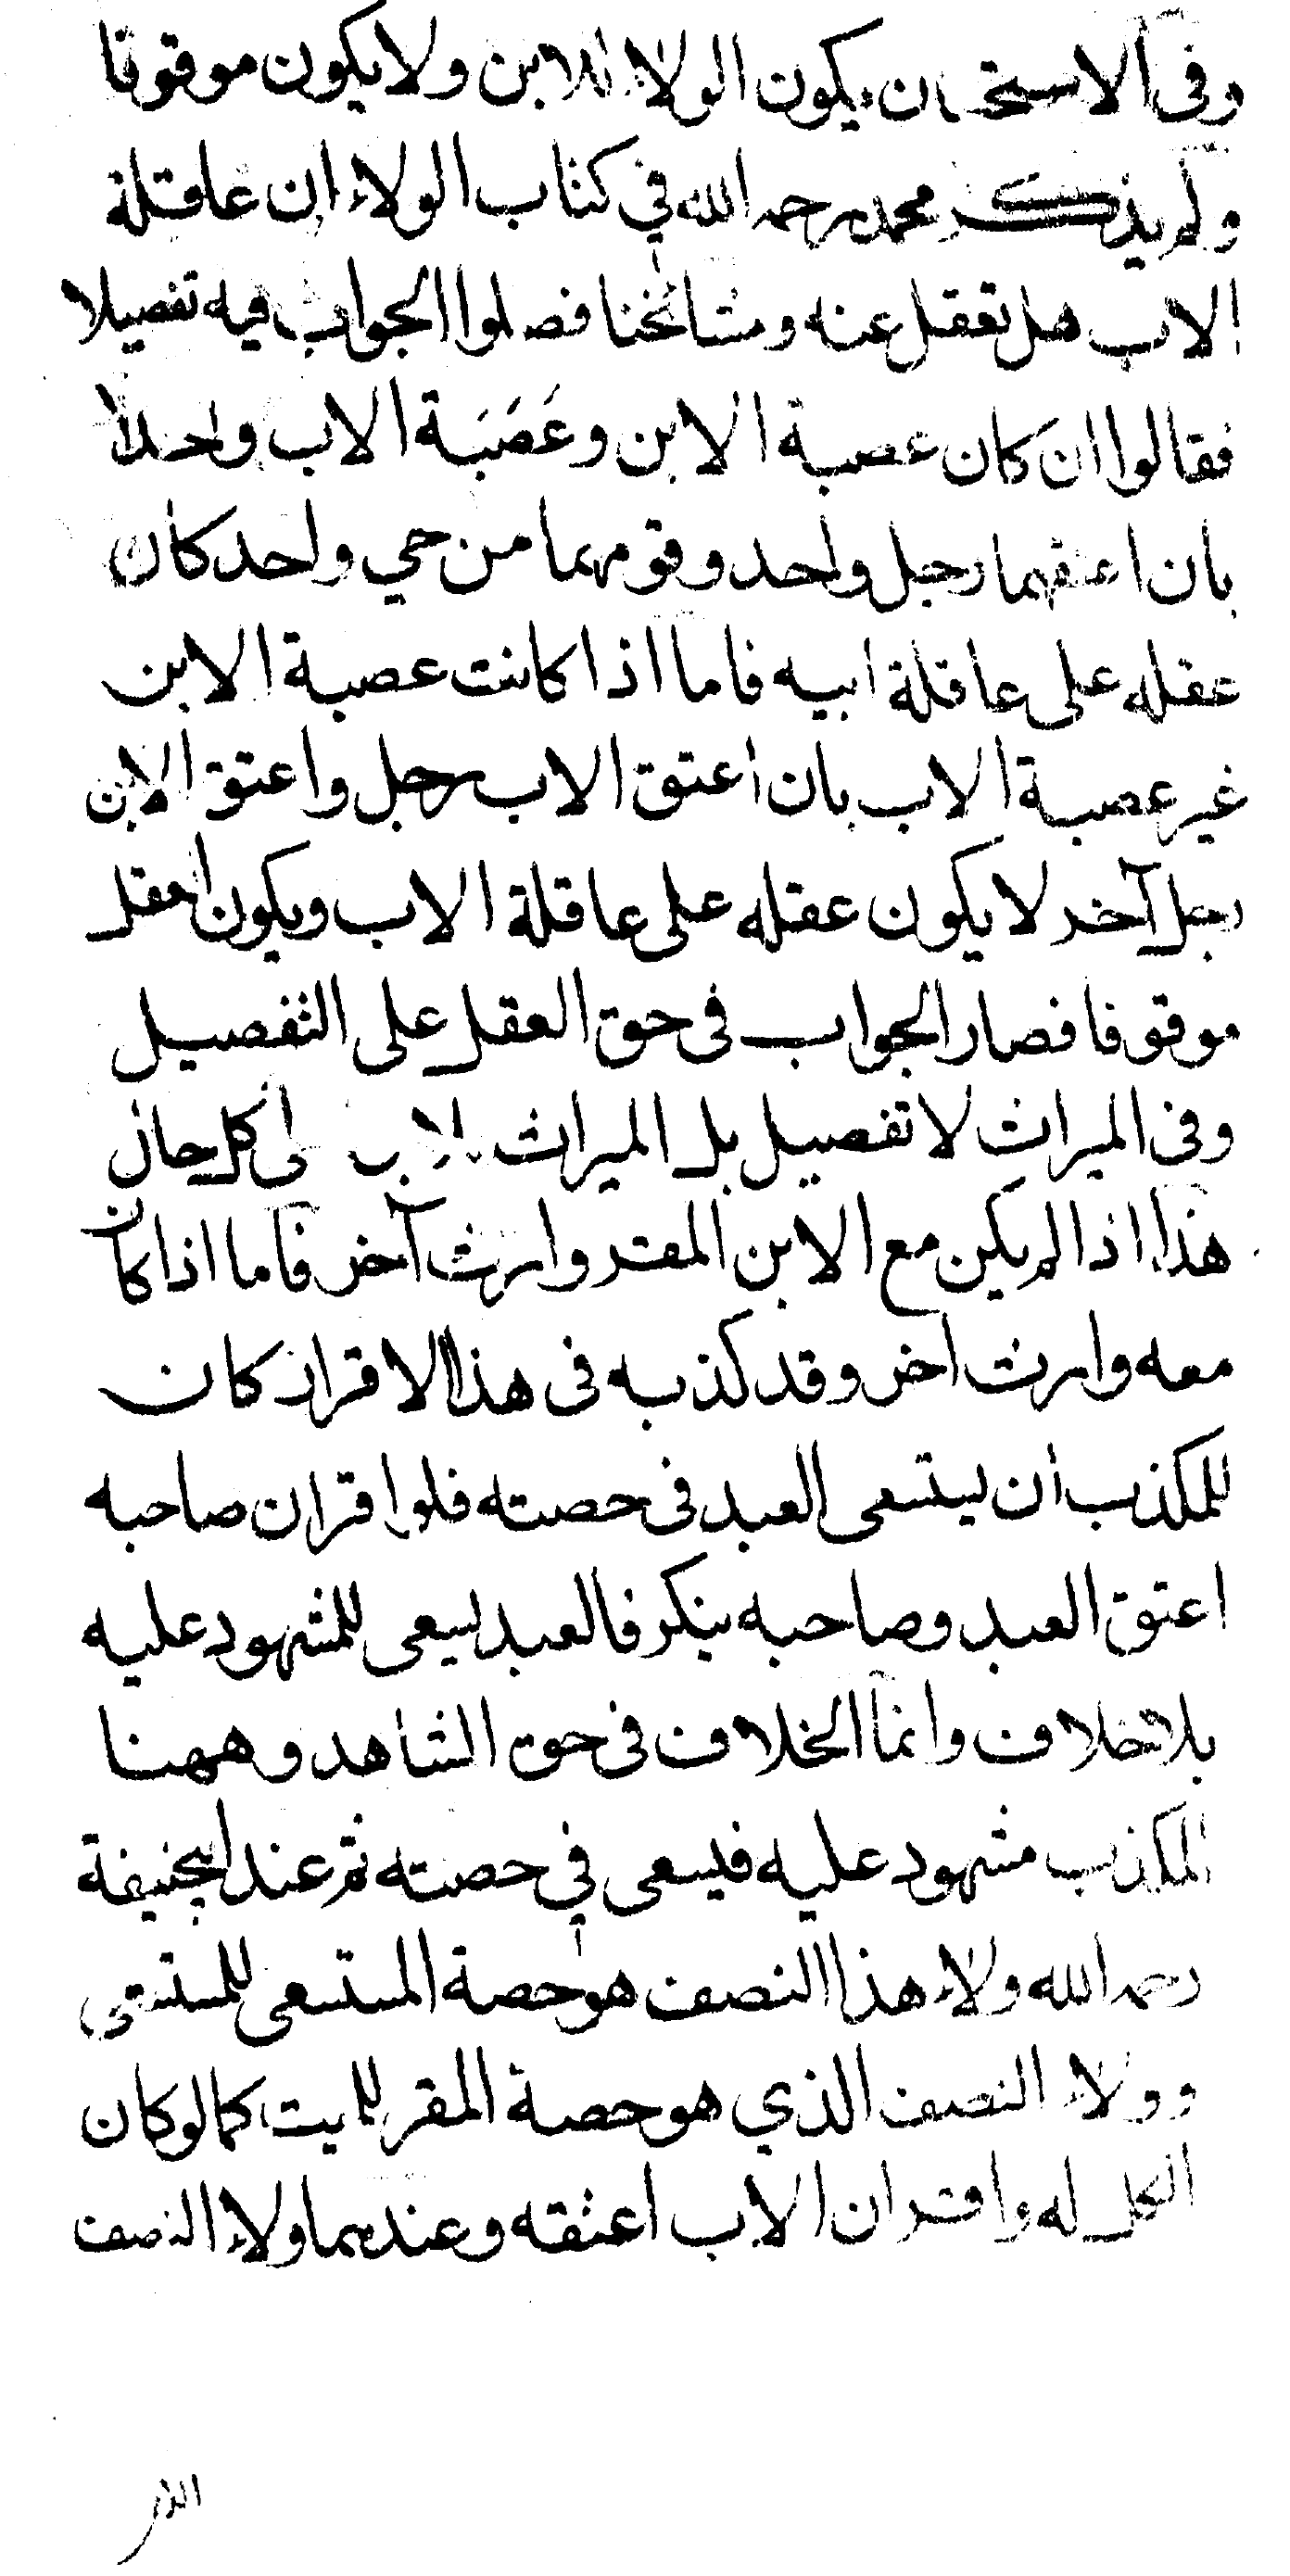 وفى الاستحسان يكون الولاء للابن ولا يكون موقوفا
ولم يذكر محمد رحمه الله في كتاب الولاء ان عاقلة
الاب هل تعقل عنه ومشائخنا فصلوا الجواب فيه تفصيلا
فقالوا ان كان عصبة الابن وعَصَبَة الاب واحدا
بان اعتقهما رجل واحد وقومهما من حي واحد كان
عقله على عاقلة ابيه فاما اذا كانت عصبة الابن
غير عصبة الاب بان اعتق الاب رجل واعتق الابن
رجل آخر لا يكون عقله على عاقلة الاب ويكون العقل
موقوفا فصار الجواب فى حق العقل على التفصيل
وفى الميراث لا تفصيل بل الميراث للاب على كل حال
هذا اذا لم يكن مع الابن المقر وارث آخر فاما اذا كان
معه وارث اخر وقد كذبه فى هذا الاقرار كان
للمكذب ان يستسعى العبد فى حصته فلو اقر ان صاحبه
اعتق العبد وصاحبه ينكر فالعبد يسعى للمشهود عليه
بلا خلاف وانما الخلاف فى حق الشاهد وههنا
المكذب مشهود عليه فيسعى في حصته ثم عند ابيحنيفة
رحمه الله ولاء هذا النصف هو حصة المستسعى للمستسعى
وولاء النصف الذي هو حصة المقر للميت كما لو كان
الكل له واقر ان الاب اعتقه وعندهما ولاء النصف